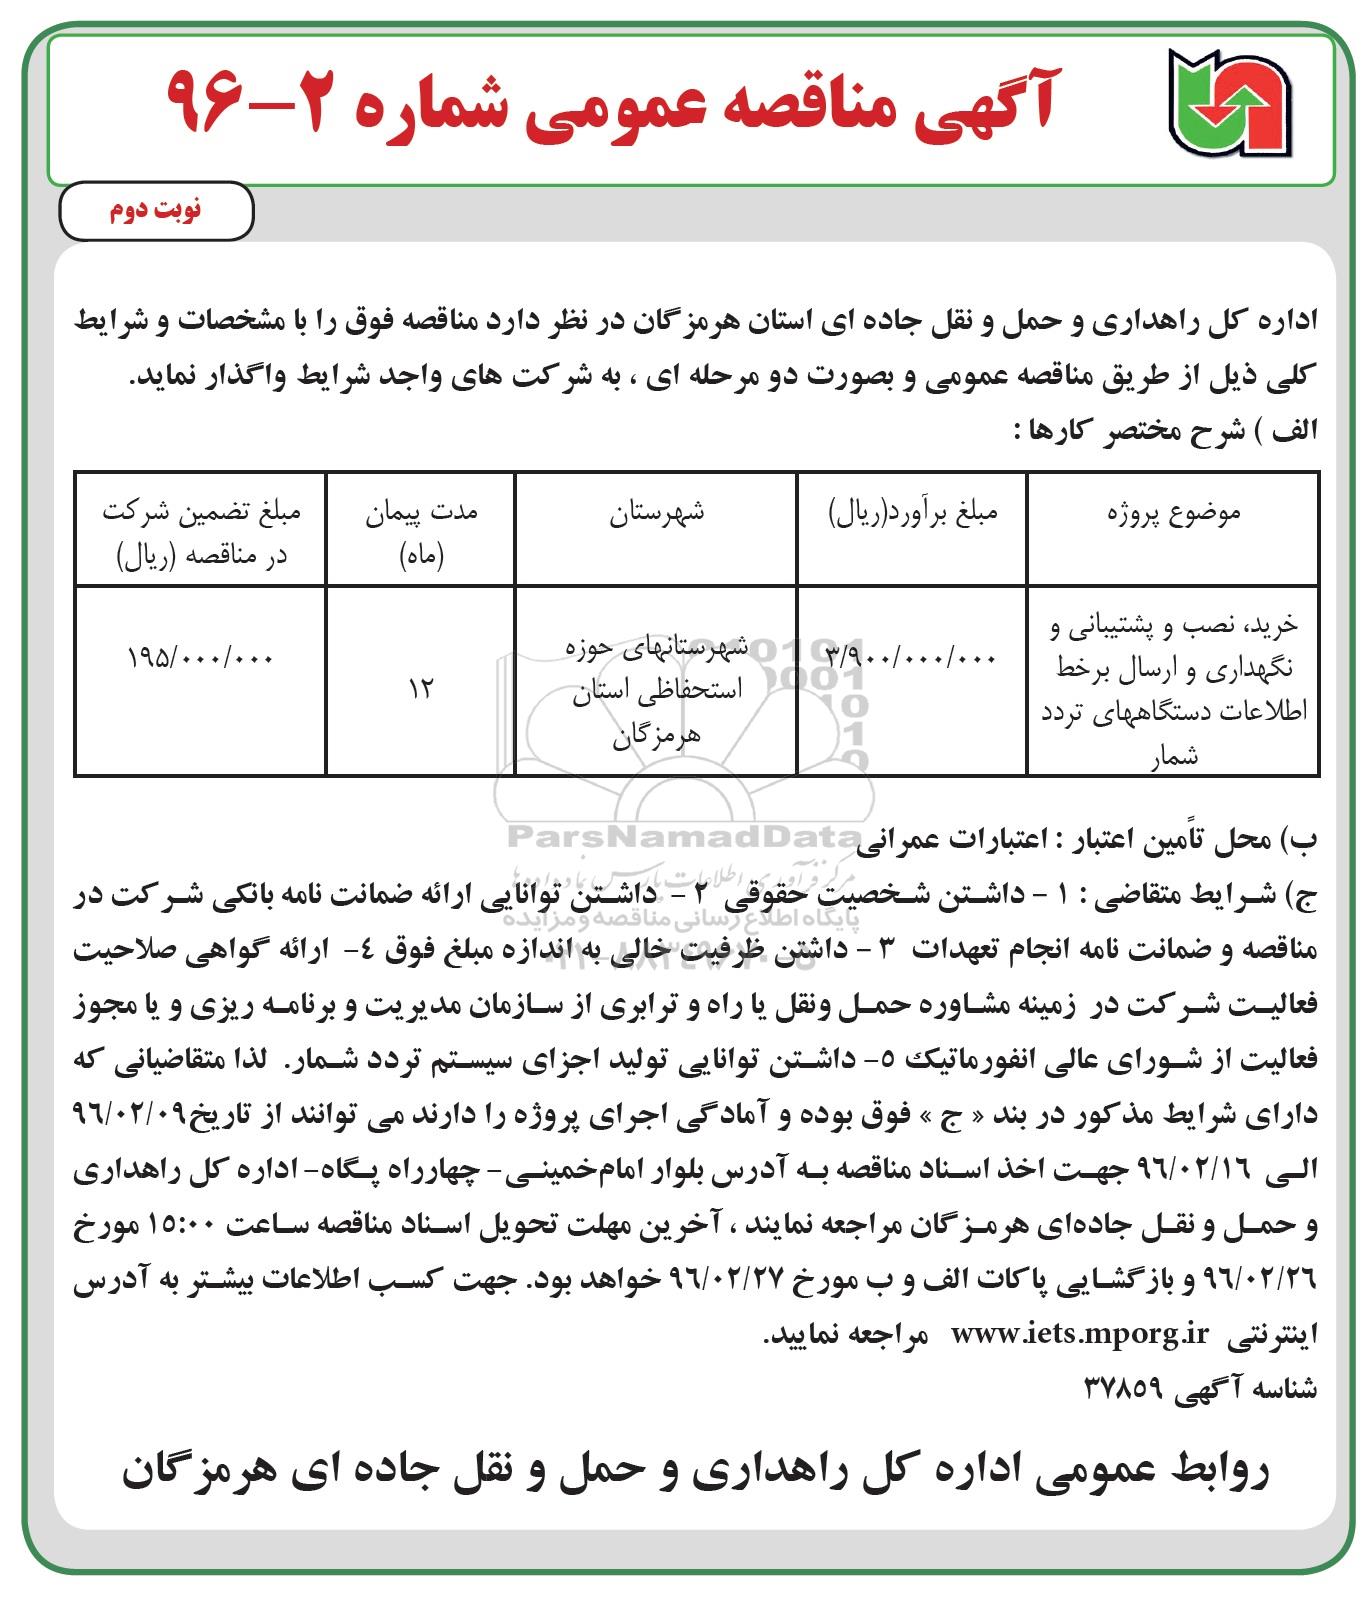 آگهی مناقصه عمومی شماره ۲-۹۶
نوبت دوم
اداره کل راهداری و حمل و نقل جاده ای استان هرمزگان در نظر دارد مناقصه فوق را با مشخصات و شرایط
کلی ذیل از طریق مناقصه عمومی و بصورت دو مرحله ای ، به شرکت های واجد شرایط واگذار نماید.
الف ) شرح مختصر کارها :
موضوع پروژه
مبلغ برآورد(ریال)
شهرستان
مدت پیمان
(ماه)
مبلغ تضمین شرکت
در مناقصه (ریال)
خرید، نصب و پشتیبانی و
نگهداری و ارسال برخط
اطلاعات دستگاههای تردد
شمار
۳/۹۰۰/۰۰۰/۰۰۰
شهرستانهای حوزه
استحفاظی استان
هرمزگان
۱۲
۱۹۵/۰۰۰/۰۰۰
ب) محل تأمین اعتبار : اعتبارات عمرانی
ParsNamadData
مرکز فرآوری اطلاعات پارس نماد داده ها
ج) شرایط متقاضی : ۱ - داشتن شخصیت حقوقی ۲ - داشتن توانایی ارائه ضمانت نامه بانکی شرکت در
پایگاه اطلاع رسانی مناقصه و مزایده
مناقصه و ضمانت نامه انجام تعهدات ۳ - داشتن ظرفیت خالی به اندازه مبلغ فوق ۴- ارائه گواهی صلاحیت
فعالیت شرکت در زمینه مشاوره حمل ونقل یا راه و ترابری از سازمان مدیریت و برنامه ریزی و یا مجوز
فعالیت از شورای عالی انفورماتیک ۵- داشتن توانایی تولید اجزای سیستم تردد شمار. لذا متقاضیانی که
دارای شرایط مذکور در بند « ج » فوق بوده و آمادگی اجرای پروژه را دارند می توانند از تاریخ۹۶/۰۲/۰۹
الی ۹۶/۰۲/۱۶ جهت اخذ اسناد مناقصه به آدرس بلوار امام‌خمینی- چهارراه پگاه- اداره کل راهداری
و حمل و نقل جاده‌ای هرمزگان مراجعه نمایند ، آخرین مهلت تحویل اسناد مناقصه ساعت ۱۵:۰۰ مورخ
۹۶/۰۲/۲۶ و بازگشایی پاکات الف و ب مورخ ۹۶/۰۲/۲۷ خواهد بود. جهت کسب اطلاعات بیشتر به آدرس
اینترنتی www.iets.mporg.ir مراجعه نمایید.
شناسه آگهی ۳۷۸۵۹
روابط عمومی اداره کل راهداری و حمل و نقل جاده ای هرمزگان